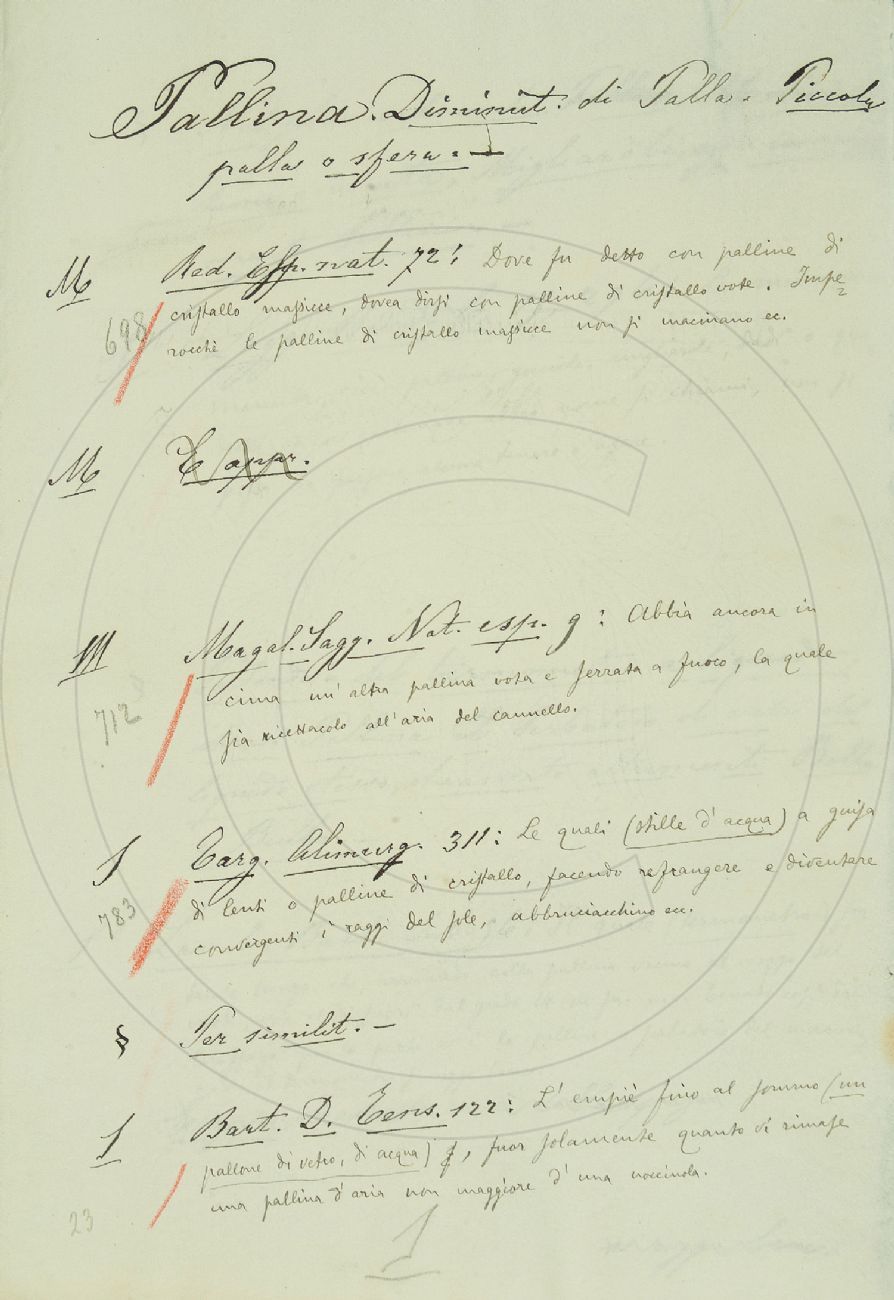 Pallina. Diminut. di Palla. Piccola
palla o sfera. —
M Red. Esp. nat. 72: Dove fu detto con palline di
698 cristallo massicce, dovea dirsi con palline di cristallo vote. Impe=
rocchè le palline di cristallo massicce non si macinano ec.
M E appr.
M Magal. Sagg. Nat. esp. 9: Abbia ancora in
712 cima un'altra pallina vota e serrata a fuoco, la quale
sia ricettacolo all'aria del cannello.
S Targ. Alimurg. 311: Le quali (stille d'acqua) a guisa
783 di lenti o palline di cristallo, facendo refrangere e diventare
convergenti i raggi del sole, abbruciacchino ec.
§ Per similit. —
S Bart. D. Tens. 122: L'empiè fino al sommo (un
pallone di vetro, di acqua), fuor solamente quanto vi rimase
23 una pallina d'aria non maggiore d'una nocciuola.
1